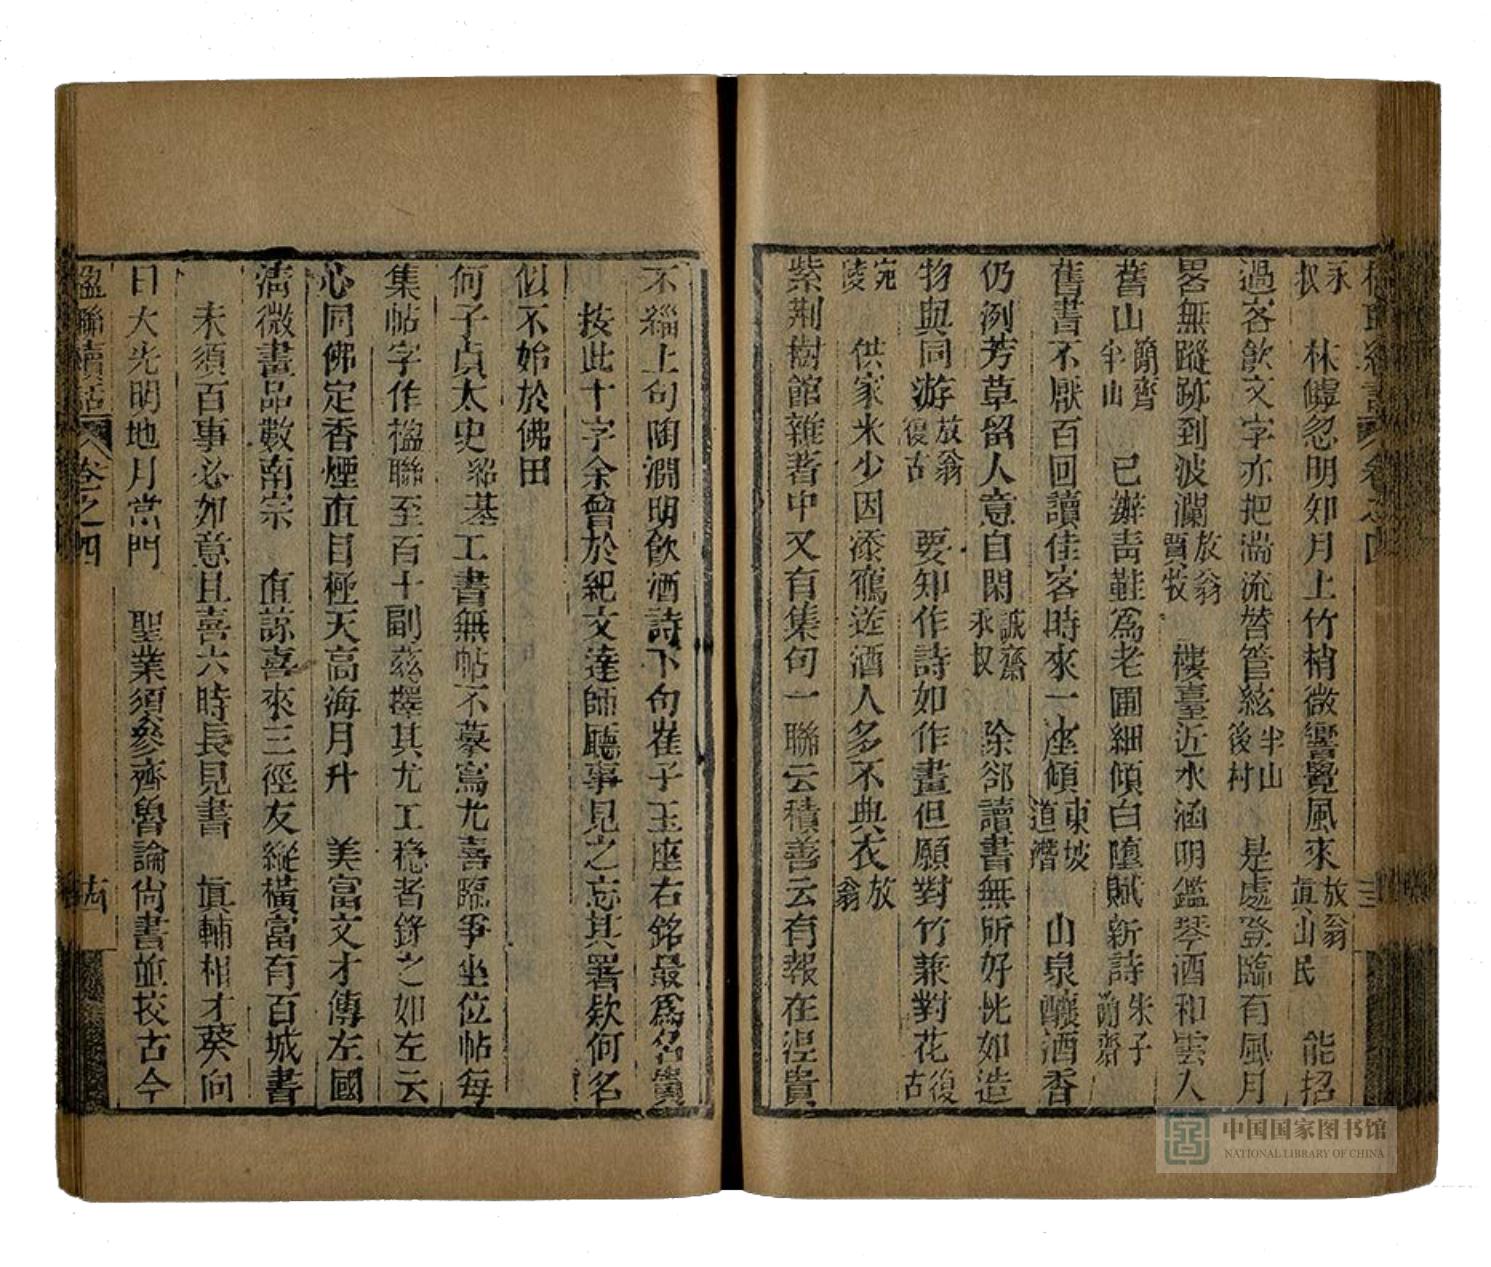 楹聯續話 卷之四
永叔 林罅忽明知月上竹梢微響覺風來放翁真山民 能招
過客飲文字亦把湍流替管絃半山後村 是處登臨有風月
畧無蹤跡到波瀾放翁賈牧 樓臺近水涵明鑑琴酒和雲入
舊山簡齋半山 已辦青鞋爲老圃細傾白墮賦新詩朱子簡齋
舊書不厭百回讀佳客時來一座傾東坡道潛 山泉釀酒香
仍洌芳草留人意自閑誠齋永叔 除郤讀書無所好恍如造
物與同游放翁復古 要知作詩如作畫但願對竹兼對花後古
宛陵 供家米少因添鶴送酒人多不典衣放翁
紫荆樹館雜著中又有集句一聯云積善云有報在涅貴
不緇上句陶淵明飲酒詩下句崔子玉座右銘最爲名貴
按此十字余曾於紀文達師廳事見之忘其署欵何名
似不始於佛田
何子貞太史紹基工書無帖不摹寫尤喜臨爭坐位帖每
集帖字作楹聯至百十副茲擇其尤工穩者錄之如左云
心同佛定香煙直目極天高海月升 美富文才傳左國
清微畫品數南宗 直諒喜來三徑友縱橫富有百城書
未須百事必如意且喜六時長見書 眞輔相才葵向
日大光明地月當門 聖業須參齊魯論尙書並挍古今
楹聯續話 卷之四 十四
中国国家图书馆
NATIONAL LIBRARY OF CHINA